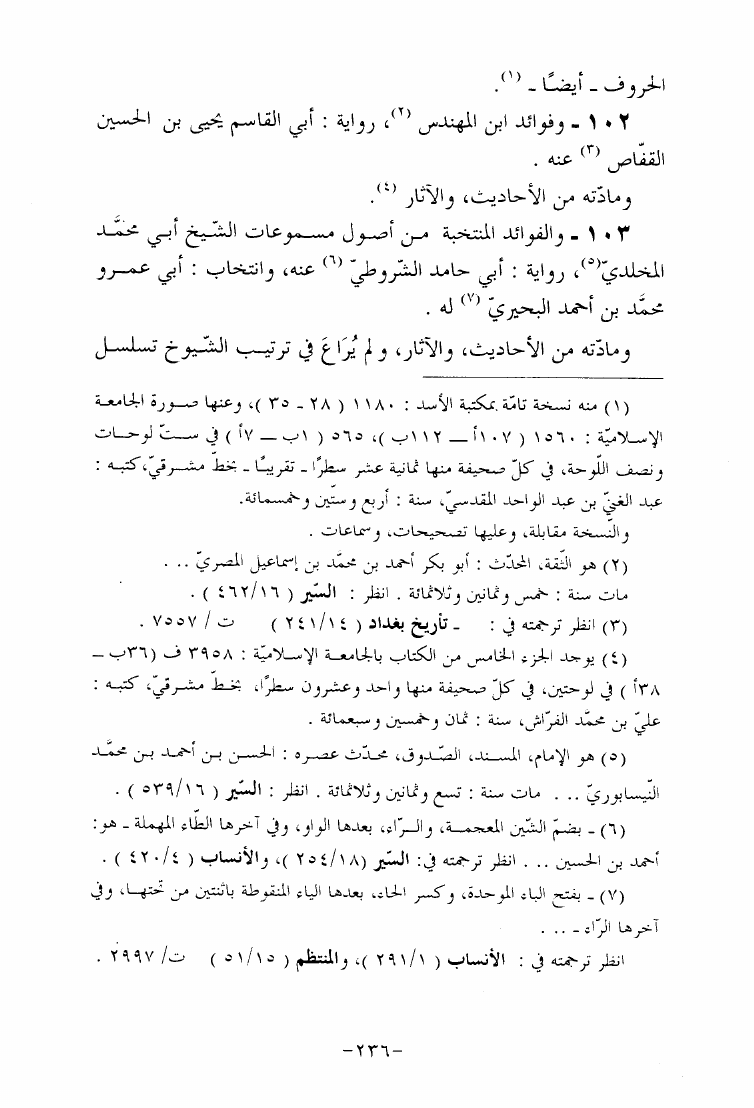 الحروف ـ أيضًا ـ (١).
١٠٢ ـ وفوائد ابن المهندس (٢)، رواية : أبي القاسم يحيى بن الحسين
القفّاص (٣) عنه .
ومادّته من الأحاديث، والآثار (٤).
١٠٣ ـ والفوائد المنتخبة من أصول مسموعات الشّيخ أبي محمَّد
المخلديّ(٥)، رواية : أبي حامد الشّروطيّ (٦) عنه، وانتخاب : أبي عمرو
محمَّد بن أحمد البحيريّ (٧) له .
ومادّته من الأحاديث، والآثار، ولم يُرَاعَ في ترتيب الشّيوخ تسلسل
(١) منه نسخة تامّة بمكتبة الأسد : ١١٨٠ ( ٢٨ ـ ٣٥ )، وعنها صورة الجامعة
الإسلاميّة : ١٥٦٠ ( ١٠٧أ ــ ١١٢ب )، ٥٦٥ ( ١ب ــ ٧أ ) في ستّ لوحات
ونصف اللّوحة، في كلّ صحيفة منها ثمانية عشر سطرًا ـ تقريبًا ـ بخطّ مشرقيّ، كتبه :
عبد الغنيّ بن عبد الواحد المقدسيّ، سنة : أربع وستّين وخمسمائة.
والنّسخة مقابلة، وعليها تصحيحات، وسماعات .
(٢) هو الثّقة، المحدّث : أبو بكر أحمد بن محمَّد بن إسماعيل المصريّ . . .
مات سنة : خمس وثمانين وثلاثمائة . انظر : السِّير ( ١٦/ ٤٦٢ ) .
(٣) انظر ترجمته في : ـ تأريخ بغداد ( ١٤/ ٢٤١ ) ت/ ٧٥٥٧ .
(٤) يوجد الجزء الخامس من الكتاب بالجامعة الإسلاميّة : ٣٩٥٨ ف (٣٦ب ــ
٣٨أ ) في لوحتين، في كلّ صحيفة منها واحد وعشرون سطرًا، بخطّ مشرقيّ، كتبه :
عليّ بن محمَّد الفرّاش، سنة : ثمان وخمسين وسبعمائة .
(٥) هو الإمام، المسند، الصّدوق، محدّث عصره : الحسن بن أحمد بن محمَّد
النّيسابوريّ . . . مات سنة : تسع وثمانين وثلاثمائة . انظر : السِّير ( ١٦/ ٥٣٩ ) .
(٦) ـ بضمّ الشّين المعجمة، والرّاء، بعدها الواو، وفي آخرها الطّاء المهملة ـ هو:
أحمد بن الحسين . . . انظر ترجمته في: السِّير (١٨/ ٢٥٤ )، والأنساب ( ٤/ ٤٢٠ ) .
(٧) ـ بفتح الباء الموحدة، وكسر الحاء، بعدها الياء المنقوطة باثنتين من تحتها، وفي
آخرها الرّاء ـ . . .
انظر ترجمته في : الأنساب ( ١/ ٢٩١ )، والمنتظم ( ١٥/ ٥١ ) ت/ ٢٩٩٧ .
-٢٣٦-